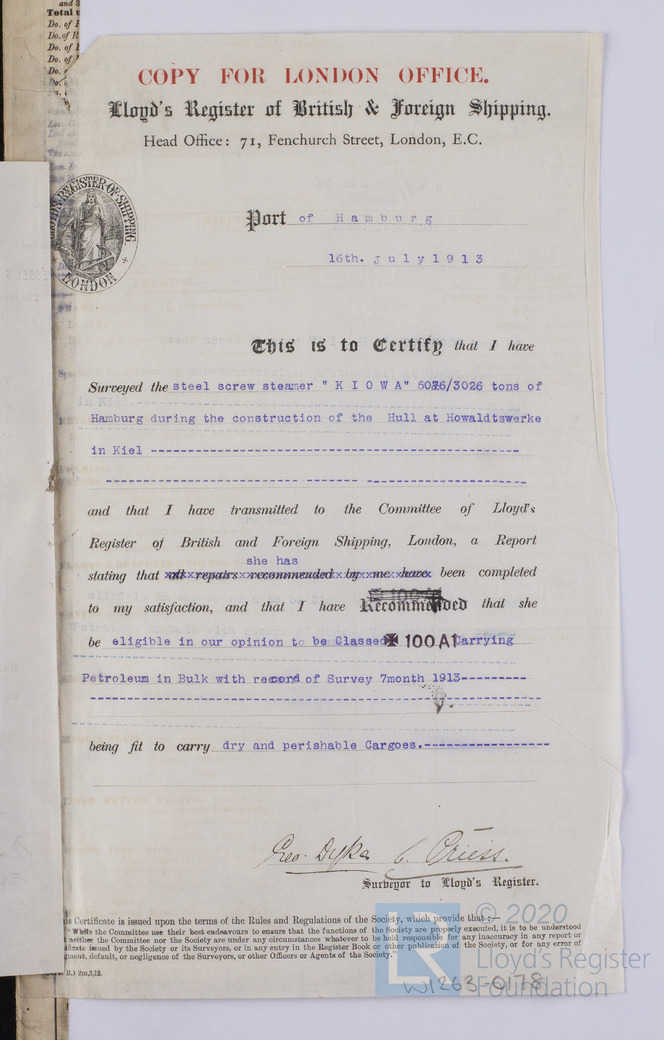 and
Total
Do. of
Do. of R
Do. of
Do. of
Do.
COPY FOR LONDON OFFICE.
Lloyd's Register of British & Foreign Shipping.
Head Office: 71, Fenchurch Street, London, E.C.
LLOYD'S REGISTER OF SHIPPING.
LONDON
Port of Hamburg
16th. July 1913
This is to Certify that I have
Surveyed the steel screw steamer "KIOWA" /3026 tons of
Hamburg during the construction of the Hull at Howaldtswerke
in Kiel
and that I have transmitted to the Committee of Lloyd's
Register of British and Foreign Shipping, London, a Report
she has
stating that all repairs recommended by me have been completed
to my satisfaction, and that I have Recommended that she
be eligible in our opinion to be Classed ✠ 100A1 Carrying
Petroleum in Bulk with record of Survey 7month 1913
being fit to carry dry and perishable Cargoes.
Geo. C. Priess.
Surveyor to Lloyd's Register.
is Certificate is issued upon the terms of the Rules and Regulations of the Society, which provide that :—
"While the Committee use their best endeavours to ensure that the functions of the Society are properly executed, it is to be understood
neither the Committee nor the Society are under any circumstances whatever to be held responsible for any inaccuracy in any report or
ficate issued by the Society or its Surveyors, or in any entry in the Register Book or other publication of the Society, or for any error of
gment, default, or negligence of the Surveyors, or other Officers or Agents of the Society."
R.) 2m,3,12.
© 2020
Lloyd's Register
Foundation
W1263-0178